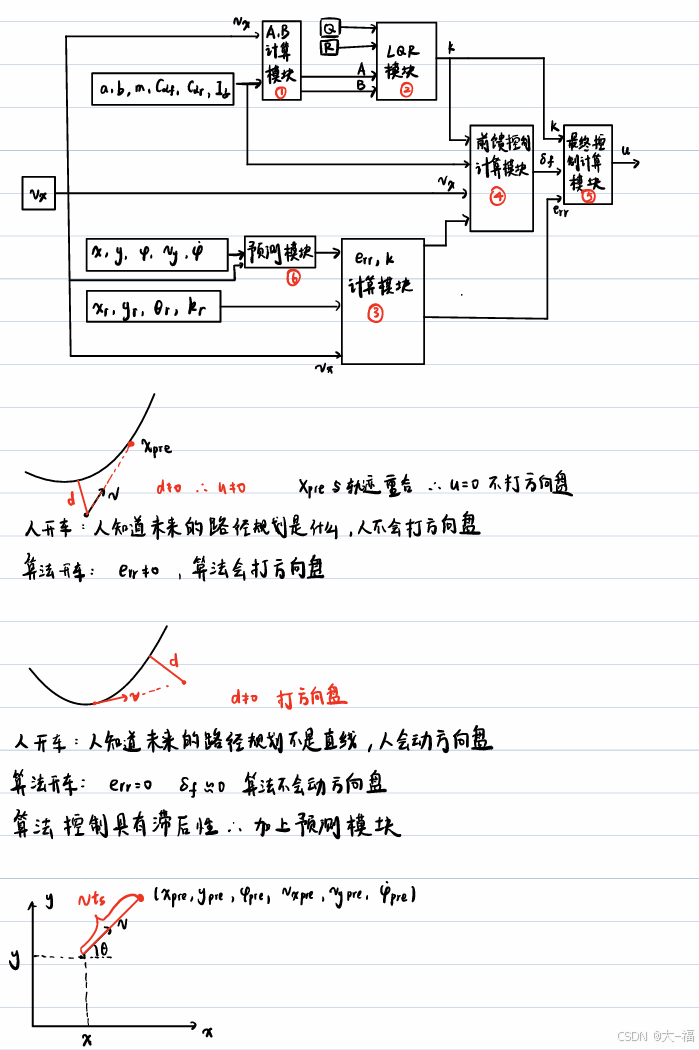 vx
A.B
计算
模块
①
Q
R
LQR
模块
②
A
B
k
a, b, m, Cαf, Cαr, Iz
vx
前馈控制
计算模块
④
vx
k
δf
err
最终控
制计算
模块
⑤
u
x, y, φ, vy, φ̇
预测模块
⑥
err, k
计算模块
③
xr, yr, θr, kr
vx
xpre
d
v
d≠0 ∴ u≠0
xpre 与轨迹重合 ∴ u=0 不打方向盘
人开车：人知道未来的路径规划是什么，人不会打方向盘
算法开车： err≠0，算法会打方向盘
d
v
d≠0 打方向盘
人开车：人知道未来的路径规划不是直线，人会动方向盘
算法开车： err=0 δf≈0 算法不会动方向盘
算法控制具有滞后性 ∴ 加上预测模块
y
vts
(xpre, ypre, φpre, vxpre, vypre, φ̇pre)
v
θ
y
x
x
CSDN @大-福